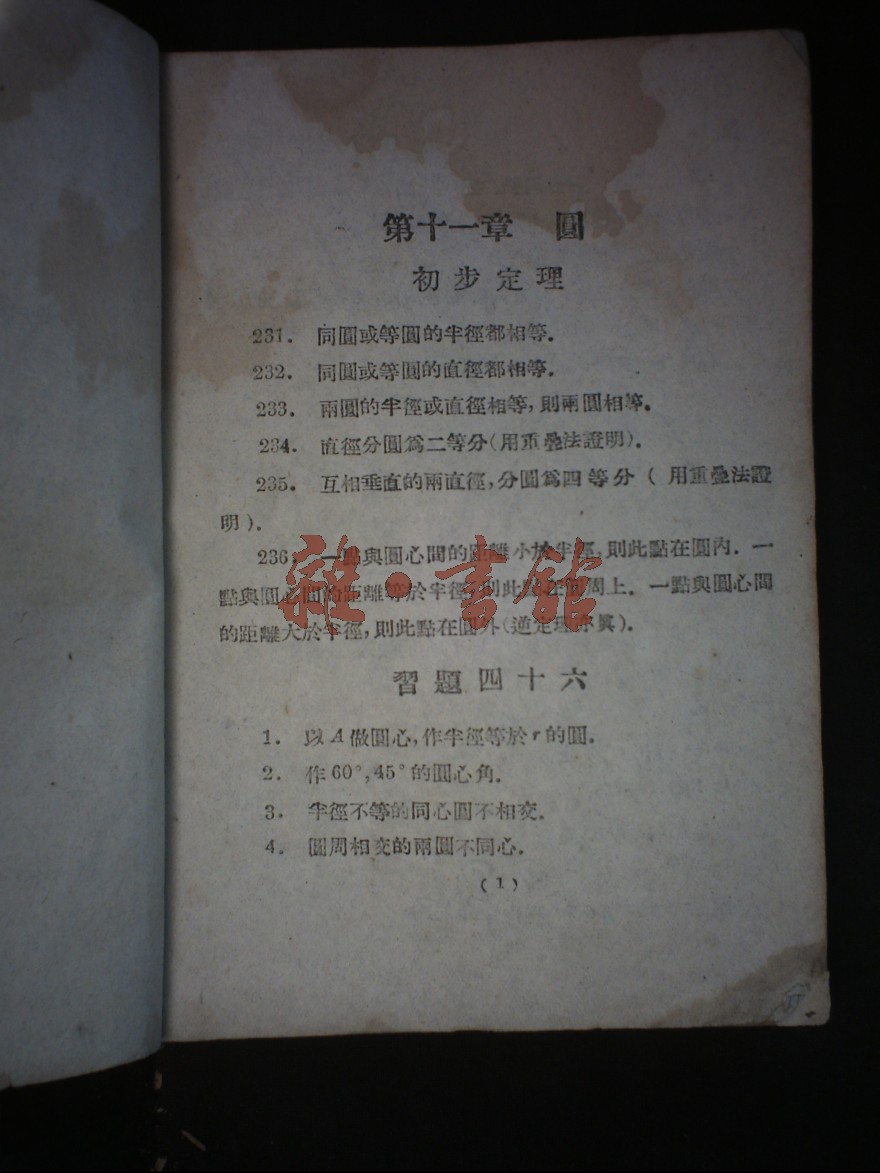 第十一章 圓
初步定理
231. 同圓或等圓的半徑都相等.
232. 同圓或等圓的直徑都相等.
233. 兩圓的半徑或直徑相等,則兩圓相等.
234. 直徑分圓爲二等分(用重疊法證明).
235. 互相垂直的兩直徑,分圓爲四等分(用重疊法證
明).
236. 一點與圓心間的距離小於半徑,則此點在圓內. 一
點與圓心間的距離等於半徑,則此點在圓周上. 一點與圓心間
的距離大於半徑,則此點在圓外(逆定理亦眞).
習題四十六
1. 以A做圓心,作半徑等於r的圓.
2. 作60°,45°的圓心角.
3. 半徑不等的同心圓不相交.
4. 圓周相交的兩圓不同心.
(1)
雜·書館